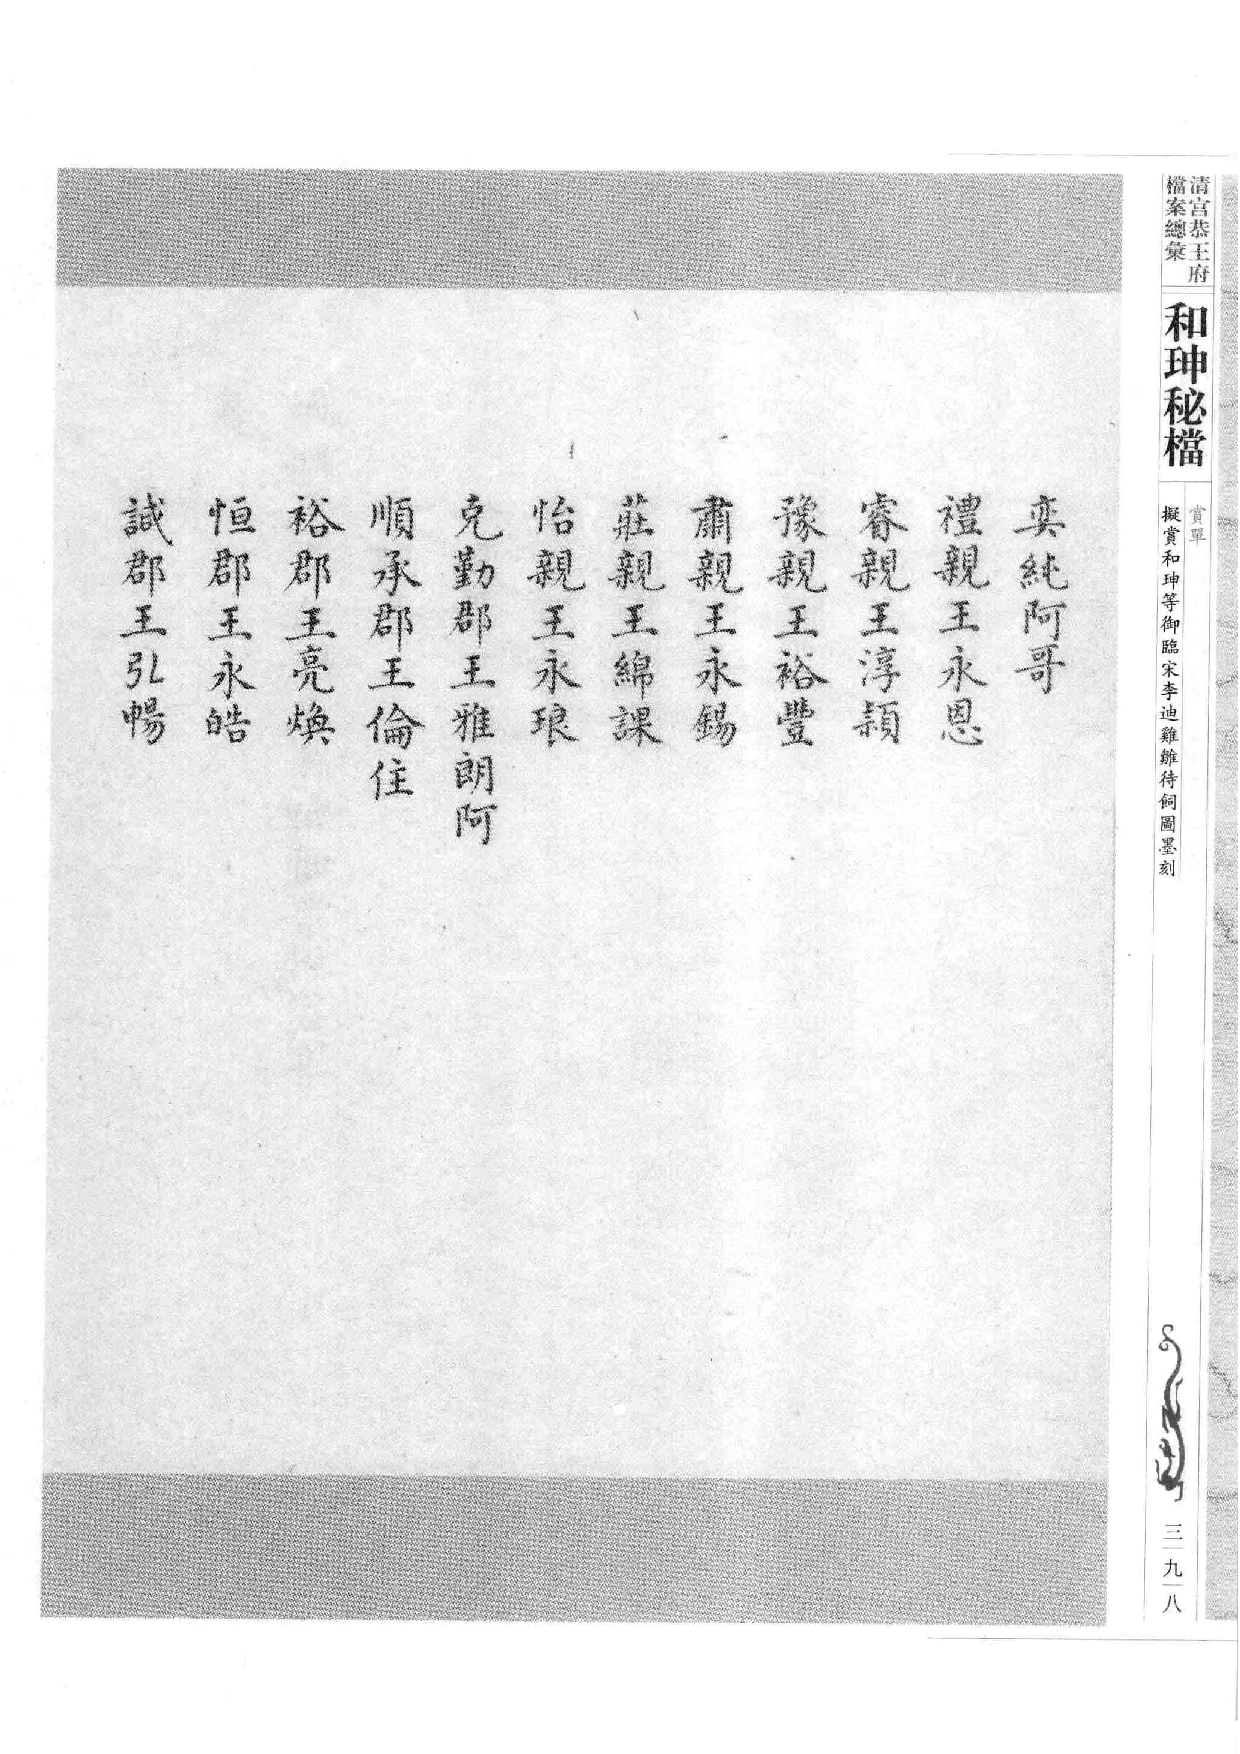 清宮恭王府
檔案總彙
和珅秘檔
賞單
擬賞和珅等御臨宋李迪雞雛待飼圖墨刻
三九八
奕純阿哥
禮親王永恩
睿親王淳頴
豫親王裕豐
肅親王永錫
莊親王綿課
怡親王永琅
克勤郡王雅朗阿
順承郡王倫住
裕郡王亮煥
恒郡王永皓
誠郡王弘暢